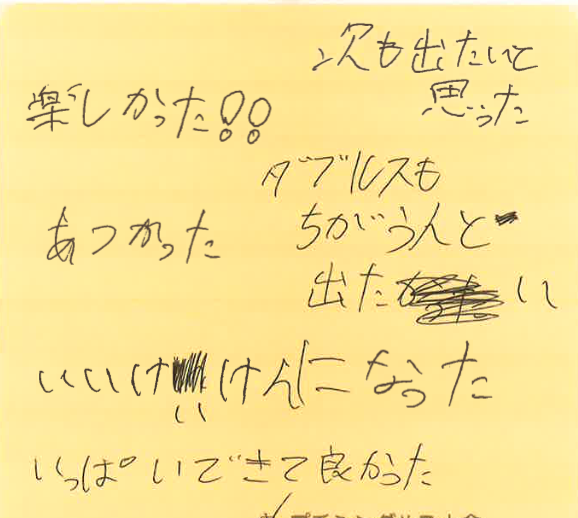 楽しかった!!
次も出たいと
思った
ダブルスも
ちがう人と
出たい
あつかった
いいけいけんになった
いっぱいできて良かった